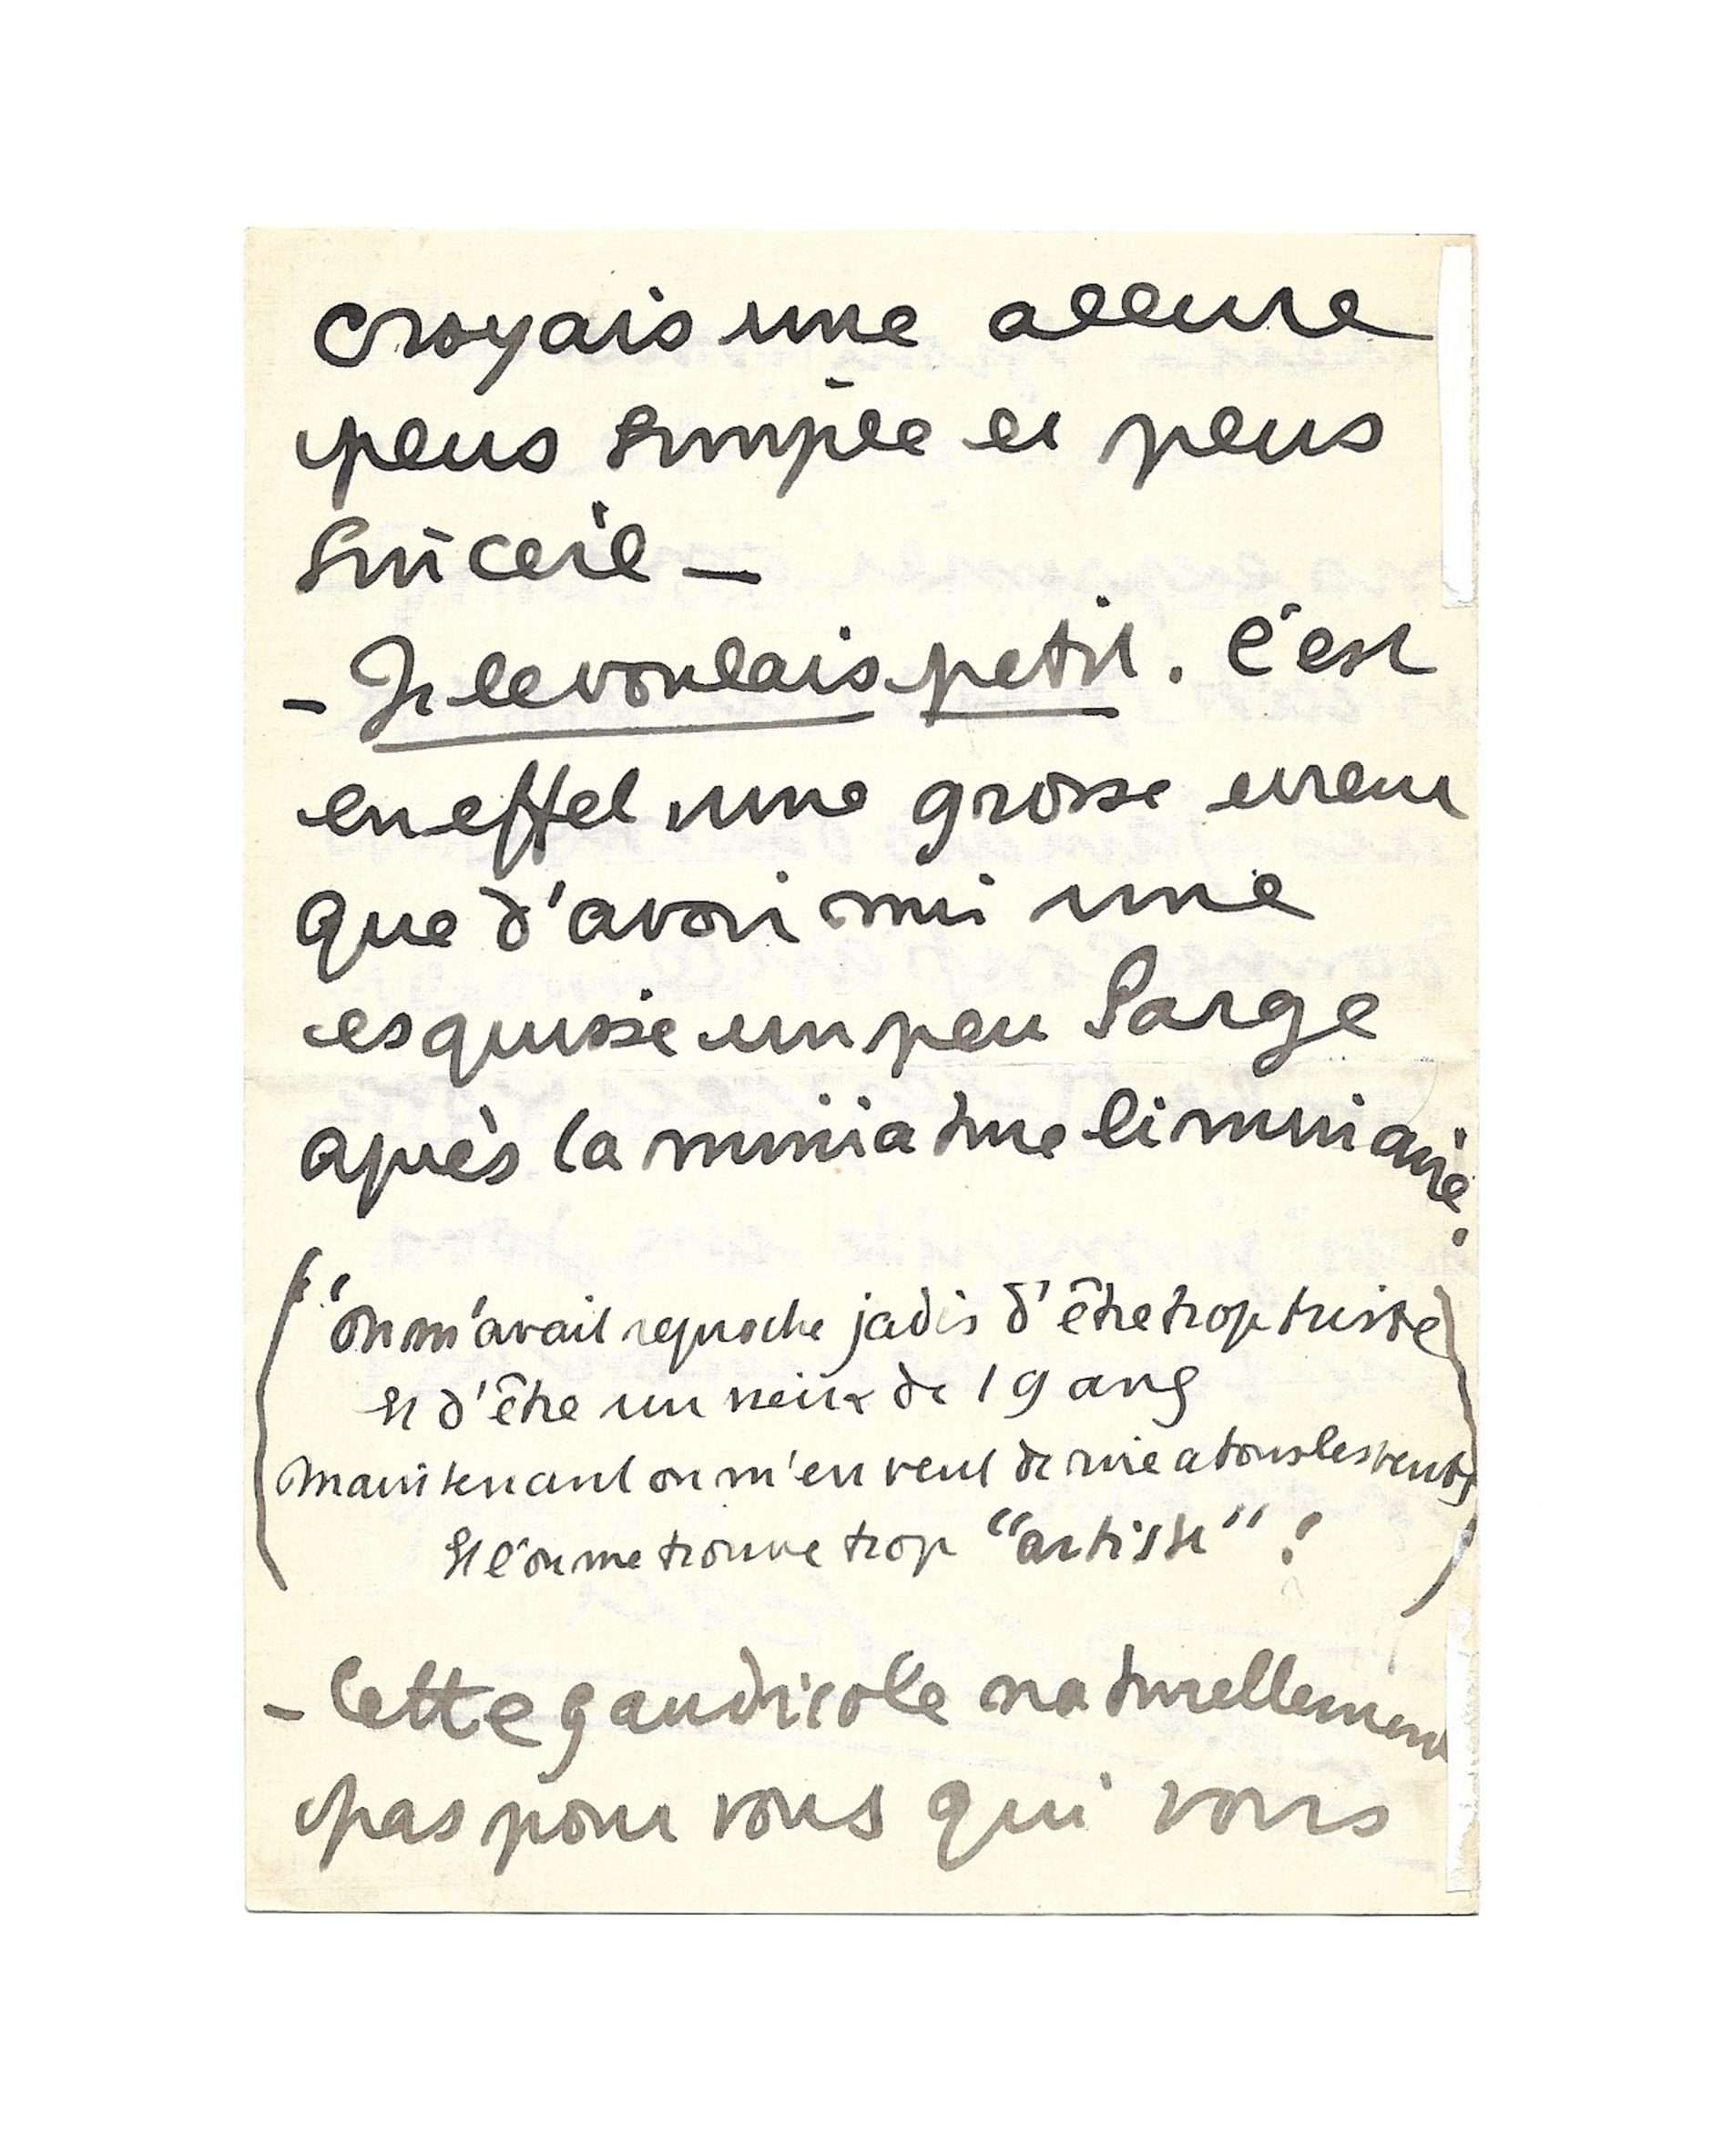 croyais une allure
plus simple et plus
sincère —
- Je le voulais petit. C'est
en effet une grosse erreur
que d'avoir mis une
esquisse un peu large
après la miniature liminaire.
("On m'avait reproché jadis d'être trop triste
Et d'être un vieux de 19 ans
Maintenant on m'en veut de rire à tous les vents
Et l'on me trouve trop "artiste" !)
- Cette gaudriole naturellement
pas pour vous qui vous